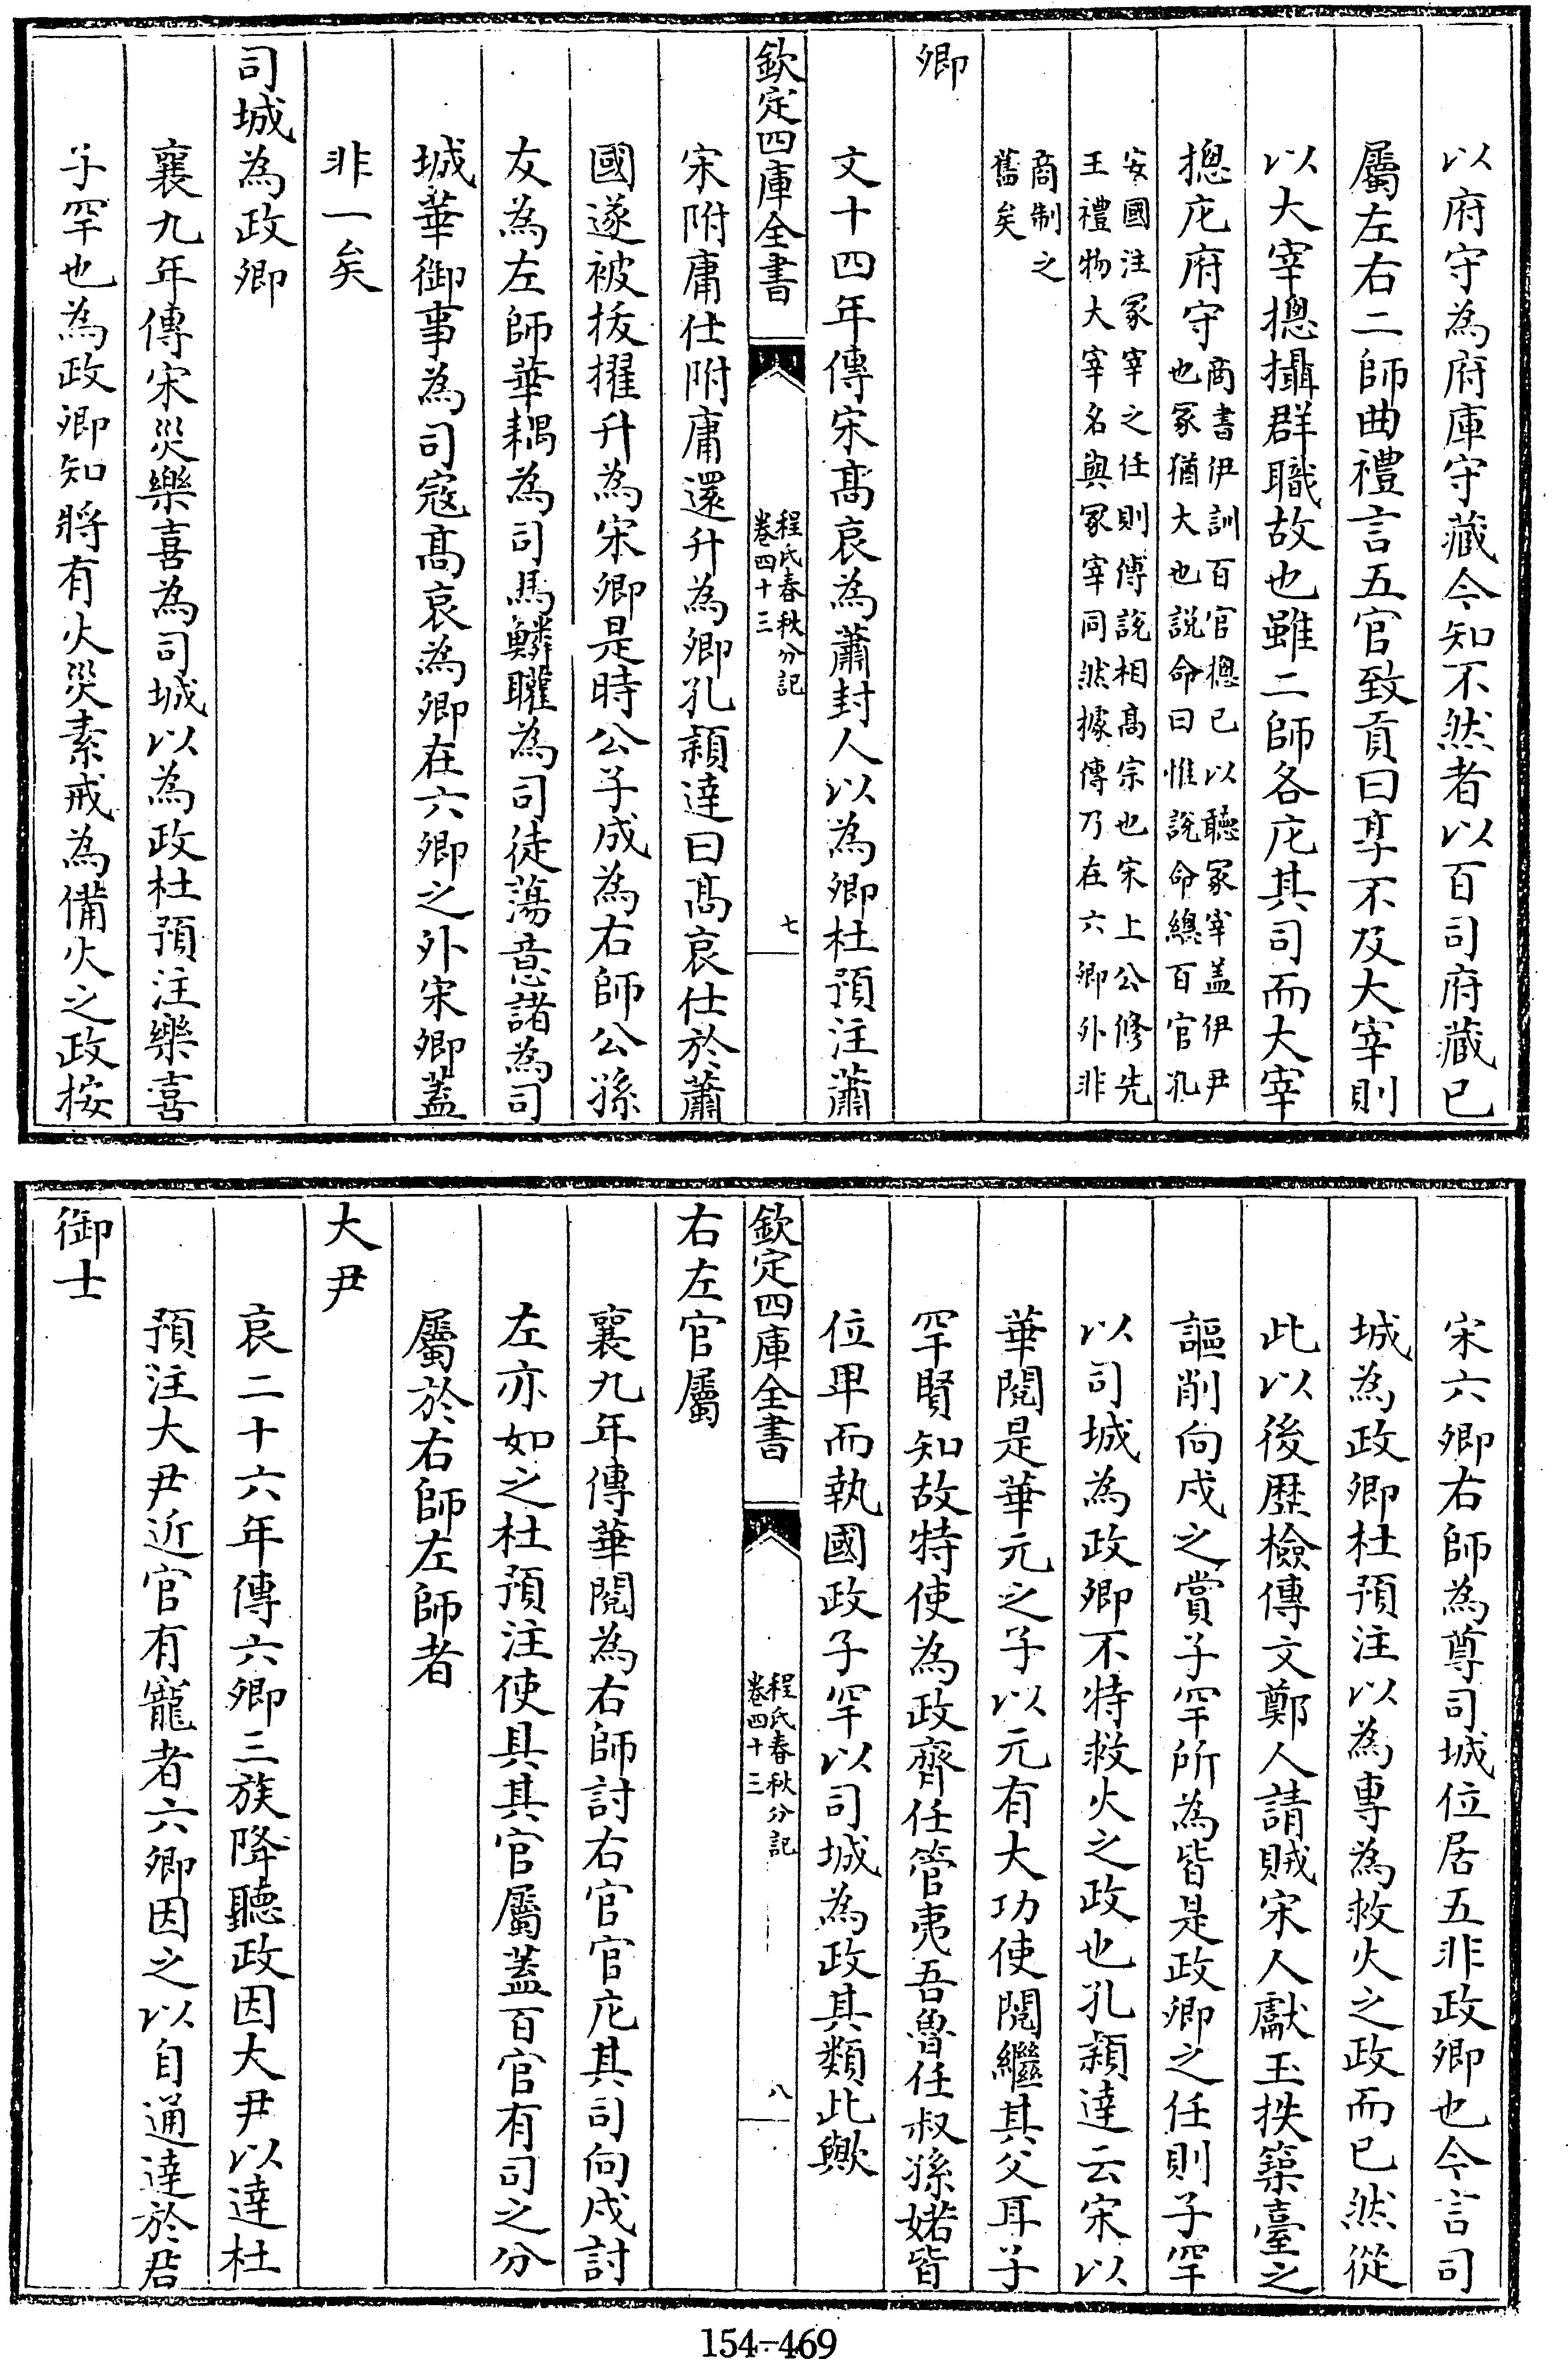 以府守為府庫守藏今知不然者以百司府藏已
屬左右二師曲禮言五官致貢曰享不及大宰則
以大宰摠攝群職故也雖二師各庀其司而大宰
摠庀府守商書伊訓百官摠已以聽冡宰盖伊尹
也冡猶大也說命曰惟說命總百官孔
安國注冡宰之任則傅說相髙宗也宋上公修先
王禮物大宰名與冡宰同然據傳乃在六卿外非
商制之
舊矣
卿
文十四年傳宋髙哀為蕭封人以為卿杜預注蕭
欽定四庫全書
程氏春秋分記
卷四十三
七
宋附庸仕附庸還升為卿孔頴逹曰髙哀仕於蕭
國遂被拔擢升為宋卿是時公子成為右師公孫
友為左師華耦為司馬鱗矔為司徒蕩意諸為司
城華御事為司寇髙哀為卿在六卿之外宋卿蓋
非一矣
司城為政卿
襄九年傳宋災樂喜為司城以為政杜預注樂喜
子罕也為政卿知將有火災素戒為備火之政按
宋六卿右師為尊司城位居五非政卿也今言司
城為政卿杜預注以為專為救火之政而已然從
此以後歴檢傳文鄭人請賊宋人獻玉抶築臺之
謳削向戌之賞子罕所為皆是政卿之任則子罕
以司城為政卿不特救火之政也孔頴達云宋以
華閱是華元之子以元有大功使閱繼其父耳子
罕賢知故特使為政齊任管夷吾魯任叔孫婼皆
位卑而執國政子罕以司城為政其類此歟
欽定四庫全書
程氏春秋分記
卷四十三
八
右左官屬
襄九年傳華閱為右師討右官官庀其司向戌討
左亦如之杜預注使具其官屬蓋百官有司之分
屬於右師左師者
大尹
哀二十六年傳六卿三族降聽政因大尹以達杜
預注大尹近官有寵者六卿因之以自通達於君
御士
154-469